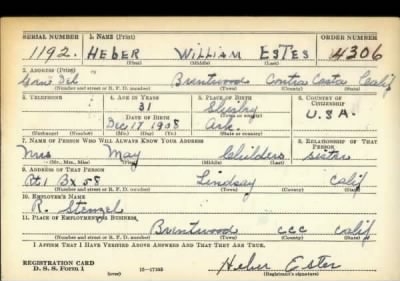 SERIAL NUMBER 1. NAME (Print) ORDER NUMBER
1192. HEBER WILLIAM ESTES 4306
(First) (Middle) (Last)
2. ADDRESS (Print)
Gen. Del. Brentwood Contra Costa Calif
(Number and street or R. F. D. number) (Town) (County) (State)
3. TELEPHONE 4. AGE IN YEARS 5. PLACE OF BIRTH 6. COUNTRY OF CITIZENSHIP
31
DATE OF BIRTH U.S.A.
Dec 17 1908 Ark.
(Exchange) (Number) (Mo.) (Day) (Yr.) (State or country)
7. NAME OF PERSON WHO WILL ALWAYS KNOW YOUR ADDRESS 8. RELATIONSHIP OF THAT PERSON
Mrs May Childers sister
(Mr., Mrs., Miss) (First) (Middle) (Last)
9. ADDRESS OF THAT PERSON
Rt 1 Bx 58 Lindsay Calif
(Number and street or R. F. D. number) (Town) (County) (State)
10. EMPLOYER'S NAME
R. Stenzel
11. PLACE OF EMPLOYMENT OR BUSINESS
Brentwood CCC Calif
(Number and street or R. F. D. number) (Town) (County) (State)
I AFFIRM THAT I HAVE VERIFIED ABOVE ANSWERS AND THAT THEY ARE TRUE.
REGISTRATION CARD
D. S. S. Form 1 (over) 16-17105 Heber Estes
(Registrant's signature)